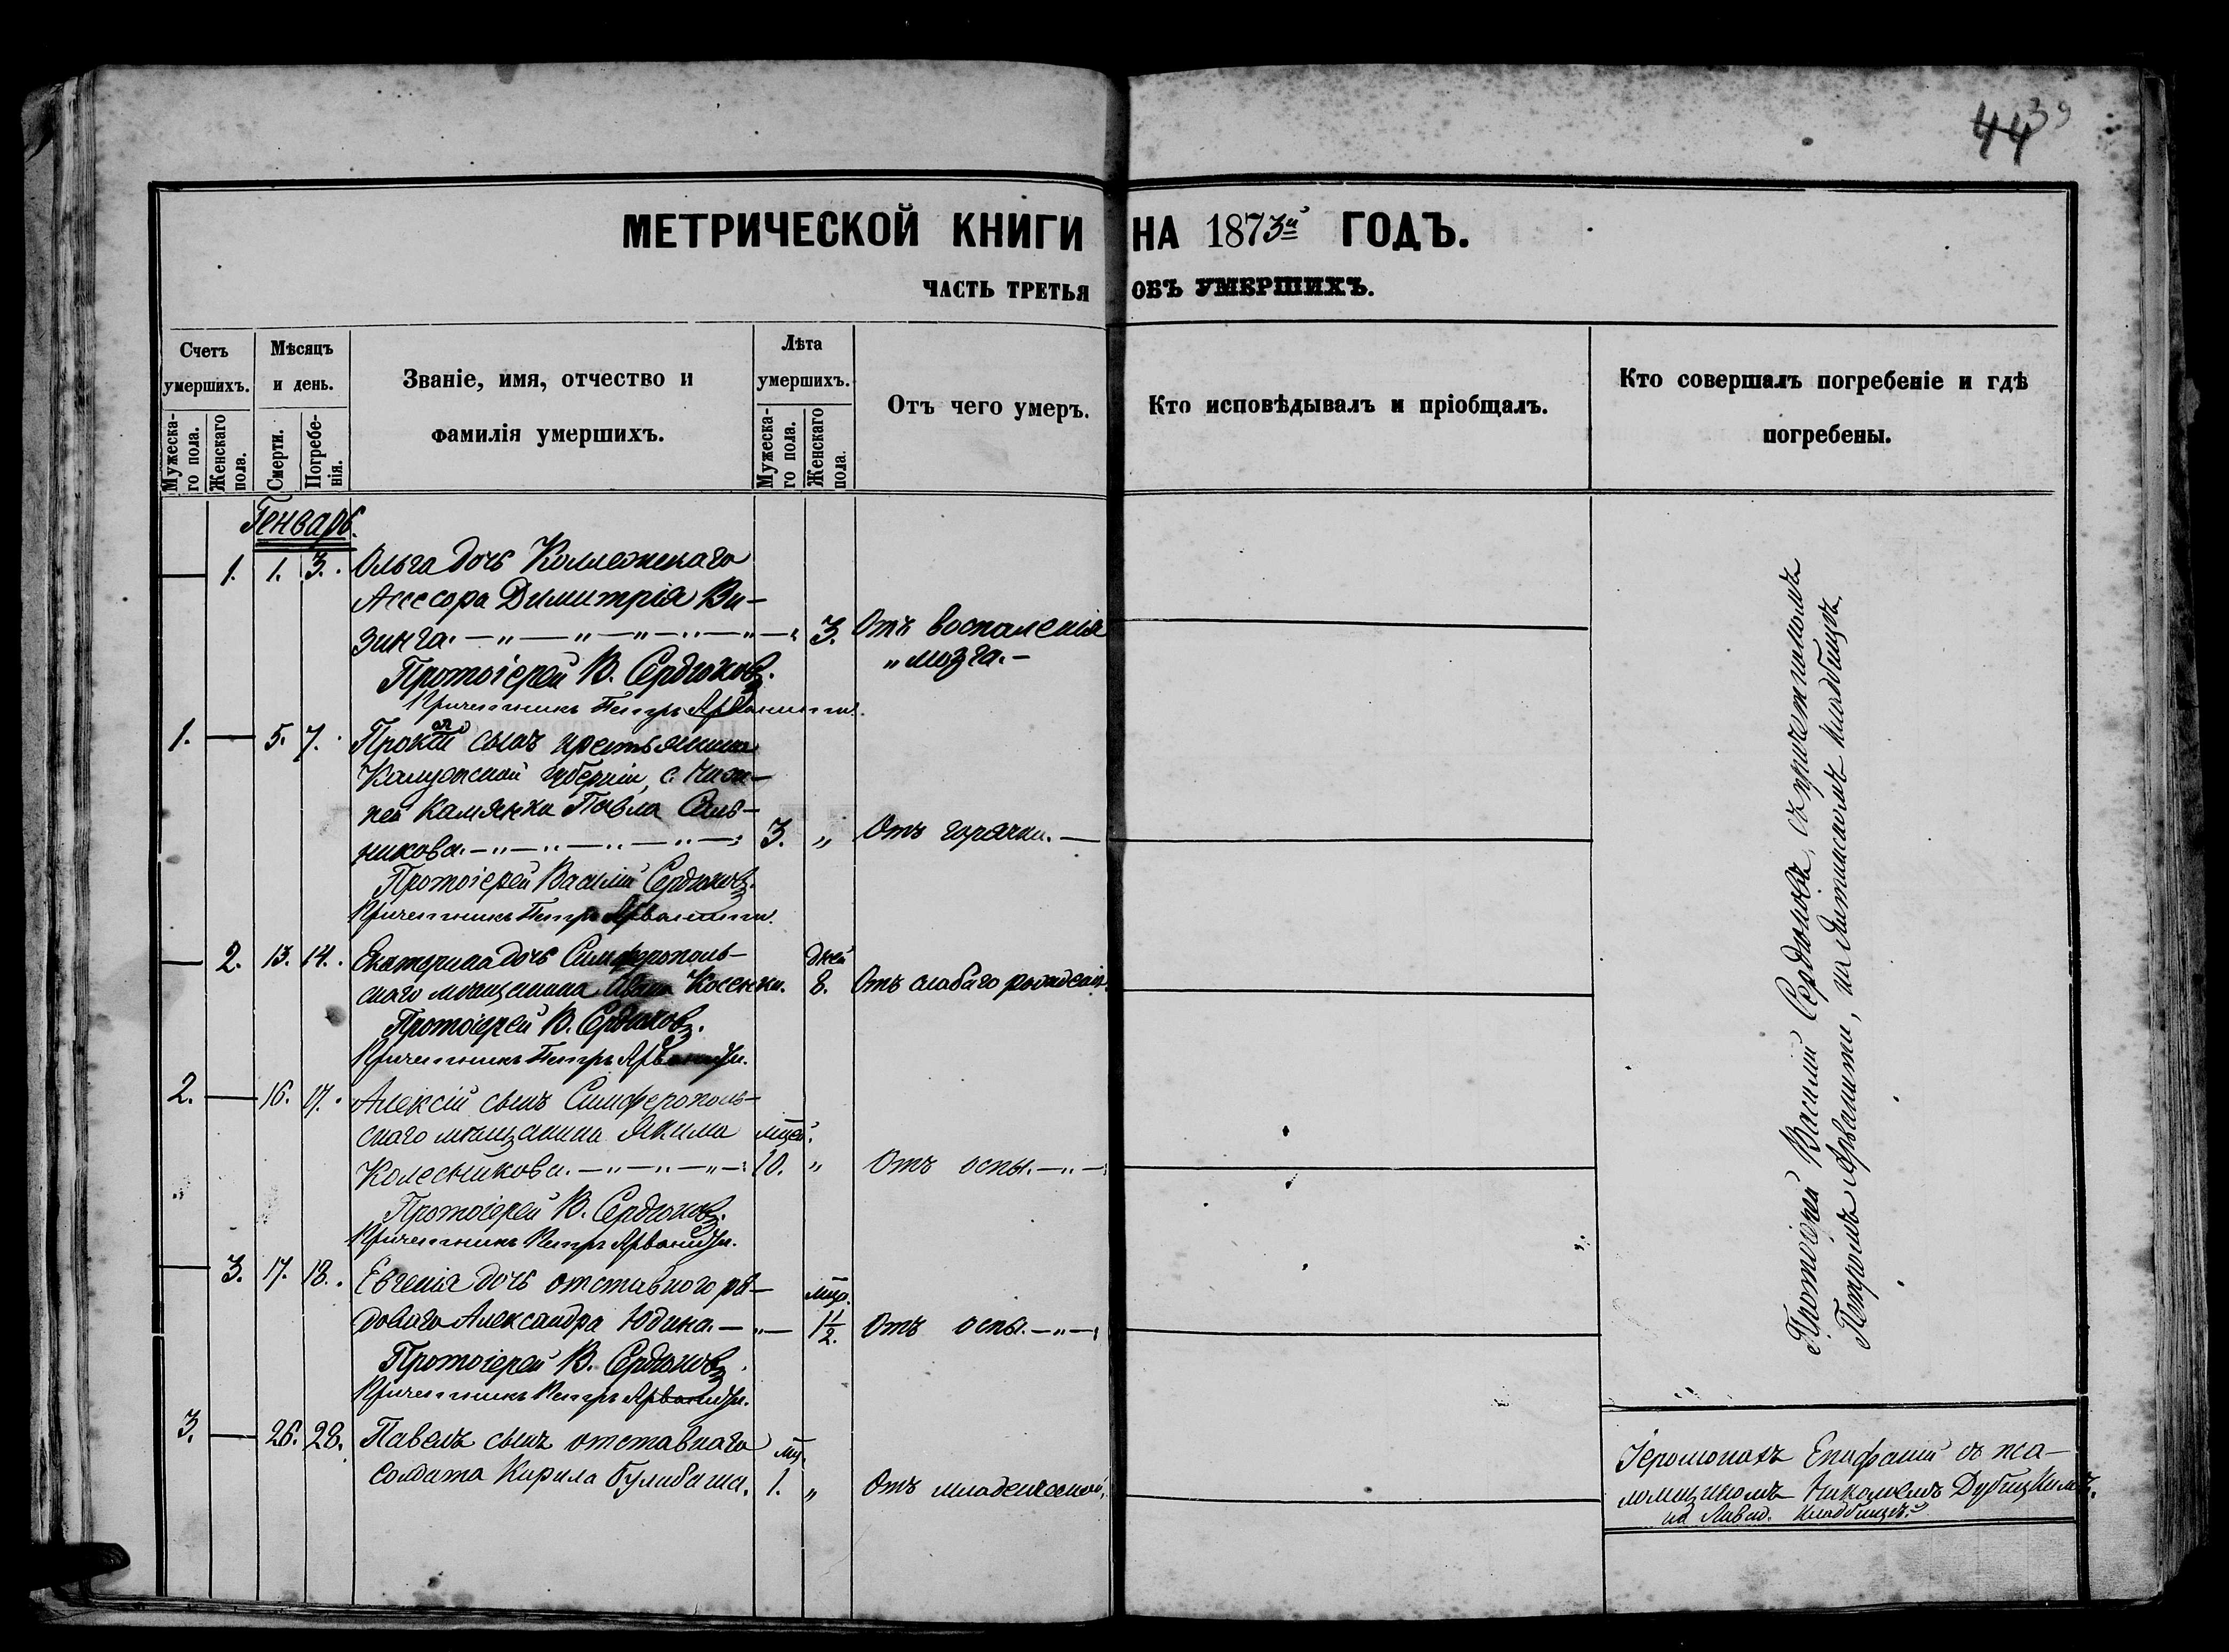 44 39
МЕТРИЧЕСКОЙ КНИГИ НА 1873й ГОДЪ.
ЧАСТЬ ТРЕТЬЯ ОБЪ УМЕРШИХЪ.
Счетъ умершихъ.
Мужеска-го пола.
Женскаго пола.
Мѣсяцъ и день.
Смерти.
Погребе-нія.
Званіе, имя, отчество и фамилія умершихъ.
Лѣта умершихъ.
Мужеска-го пола.
Женскаго пола.
Отъ чего умеръ.
Кто исповѣдывалъ и пріобщалъ.
Кто совершалъ погребеніе и гдѣ погребены.
Генварь.
1. 1. 3. Ольга дочь Коллежскаго
Ассесора Димитрія Ви-
зинга. 3. Отъ воспаленія
мозга.
Протоіерей В. Сердюковъ.
Причетникъ Петръ Арванити.
1. 5. 7. сынъ крестьянина
Калужской губерніи, с.
Камянки Павла
никова. 3. " Отъ горячки.
Протоіерей Василій Сердюковъ.
Причетникъ Петръ Арванити.
2. 13. 14. Екатерина дочь Симферополь- дней
скаго мѣщанина Ивана Косенки. 8. Отъ слабаго рожденія.
Протоіерей В. Сердюковъ.
Причетникъ Петръ Арванити.
2. 16. 17. Алексій сынъ Симферополь-
скаго мѣщанина Якима мцей.
Колесникова. 10. " Отъ оспы.
Протоіерей В. Сердюковъ.
Причетникъ Петръ Арванити.
3. 17. 18. Евгенія дочь отставного ря- мца.
доваго Александра Юдина. 1 1/2. Отъ оспы.
Протоіерей В. Сердюковъ.
Причетникъ Петръ Арванити.
3. 26. 28. Павелъ сынъ отставнаго мц.
солдата Кирила Булибаша. 1. " Отъ младенческой.
Протоіерей Василій Сердюковъ, съ причетникомъ
Петромъ Арванити, на кладбищѣ.
Іеромонахъ Епифаній съ пса-
ломщикомъ Николаемъ Дубицкимъ.
на кладбищѣ.